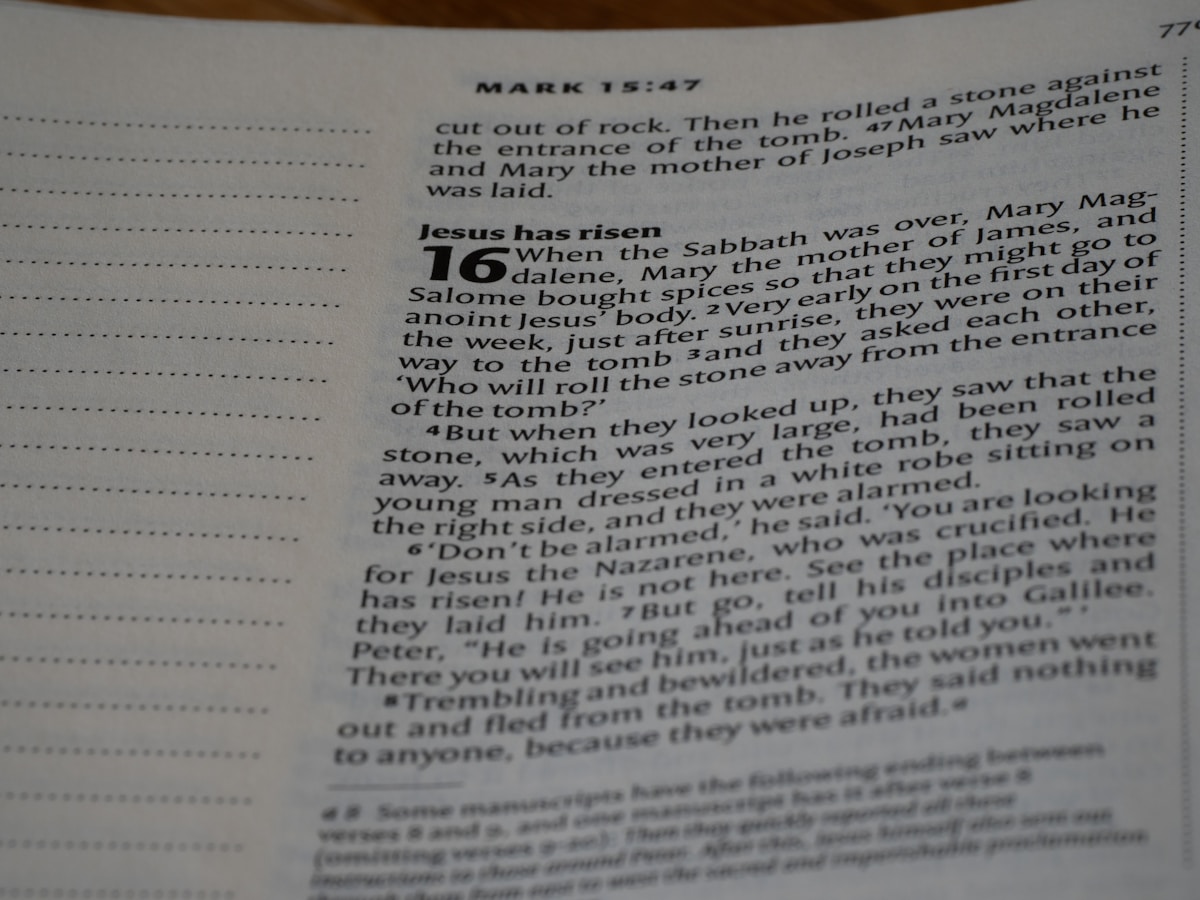 770
MARK 15:47
cut out of rock. Then he rolled a stone against
the entrance of the tomb. 47 Mary Magdalene
and Mary the mother of Joseph saw where he
was laid.
Jesus has risen
16 When the Sabbath was over, Mary Mag-
dalene, Mary the mother of James, and
Salome bought spices so that they might go to
anoint Jesus’ body. 2 Very early on the first day of
the week, just after sunrise, they were on their
way to the tomb 3 and they asked each other,
‘Who will roll the stone away from the entrance
of the tomb?’
4 But when they looked up, they saw that the
stone, which was very large, had been rolled
away. 5 As they entered the tomb, they saw a
young man dressed in a white robe sitting on
the right side, and they were alarmed.
6 ‘Don’t be alarmed,’ he said. ‘You are looking
for Jesus the Nazarene, who was crucified. He
has risen! He is not here. See the place where
they laid him. 7 But go, tell his disciples and
Peter, “He is going ahead of you into Galilee.
There you will see him, just as he told you.” ’
8 Trembling and bewildered, the women went
out and fled from the tomb. They said nothing
to anyone, because they were afraid.
Some manuscripts have the following ending between
verses 8 and 9, and one manuscript has it after verse 8
(omitting verses 9-20): Then they quickly reported all these
instructions to those around Peter. After this, Jesus himself also sent out
through them from east to west the sacred and imperishable proclamation